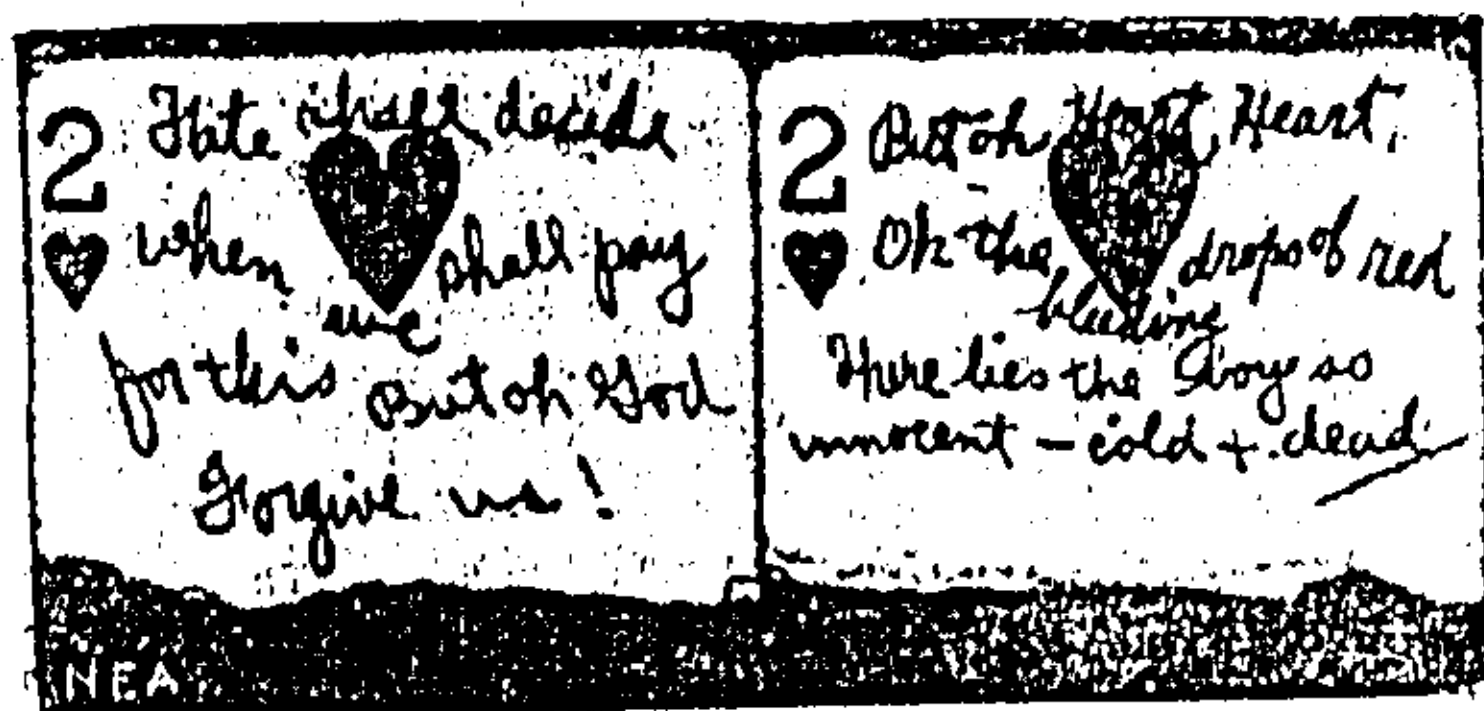 2 Fate shall decide
when we shall pay
for this But oh God
Forgive us!
2 But oh Heart, Heart,
Oh the bleeding drops of red
Here lies the Boy so
innocent - cold + dead
NEA